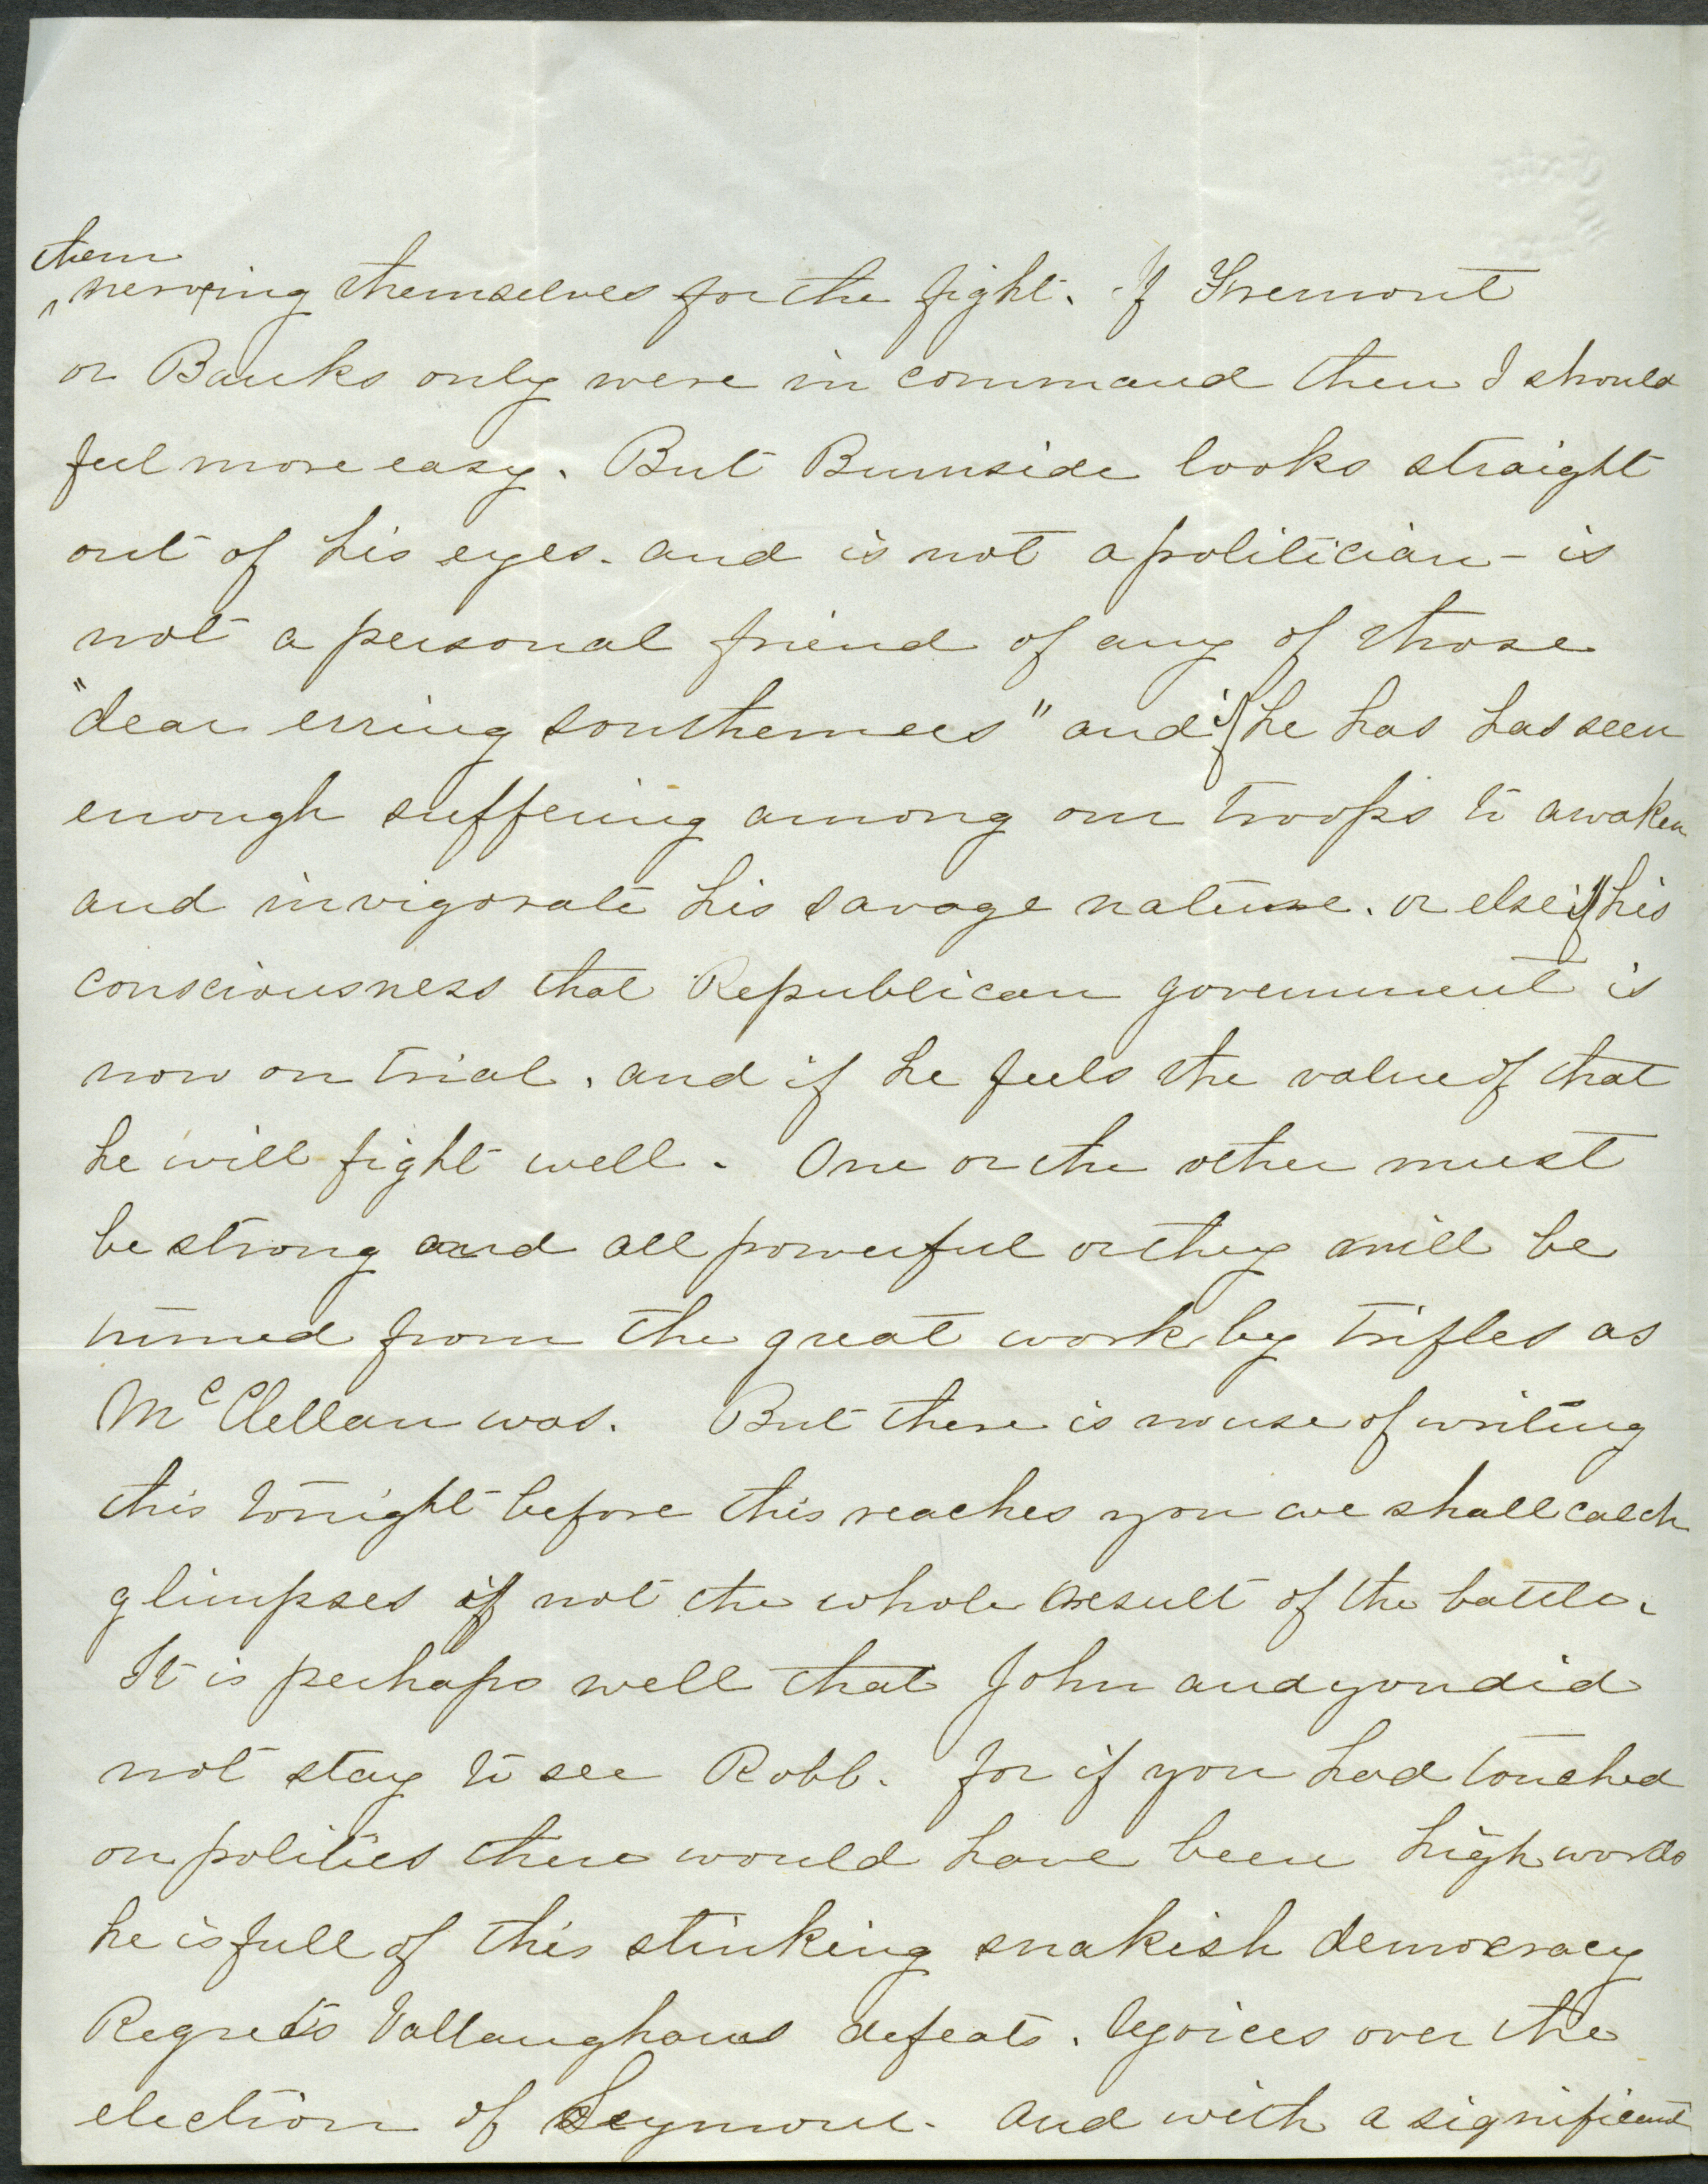 them
nerving themselves for the fight. If Fremont
or Banks only were in command then I should
feel more easy. But Burnside looks straight
out of his eyes. and is not a politician - is
not a personal friend of any of those
"dear erring southerners" and if he has has seen
enough suffering among our troops to awaken
and invigorate his savage nature. or else if his
consciousness that Republican government is
now on trial, and if he feels the value of that
he will fight well. One or the other must
be strong and all powerful or they will be
turned from the great work by trifles as
McClellan was. But there is no use of writing
this tonight before this reaches you we shall catch
glimpses if not the whole result of the battle.
It is perhaps well that John and you did
not stay to see Robb. for if you had touched
on politics there would have been high words
he is full of this stinking snakish democracy
Regrets Vallanghams defeats. Rejoices over the
election of Seymour. And with a significant